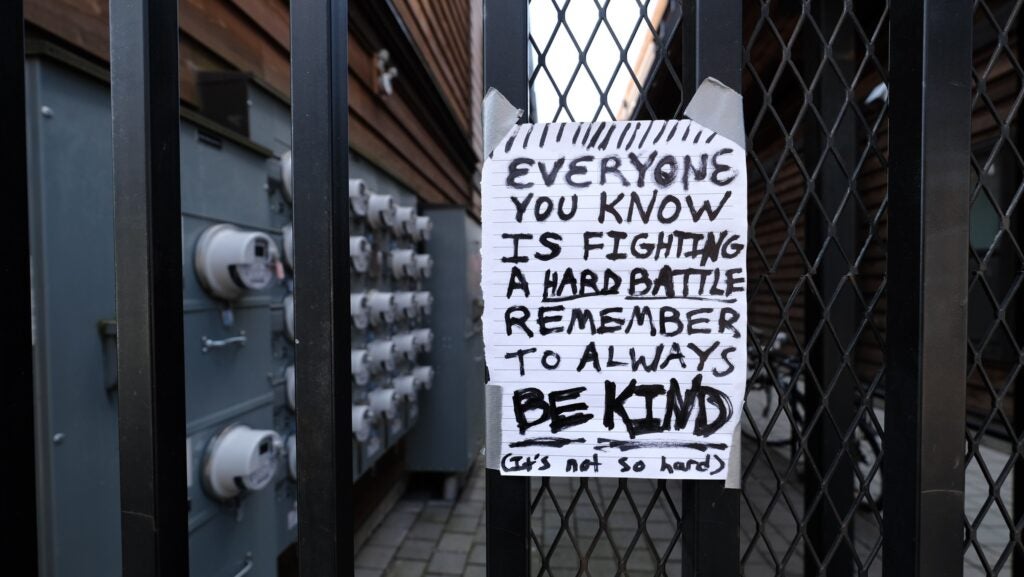 EVERYONE
YOU KNOW
IS FIGHTING
A HARD BATTLE
REMEMBER
TO ALWAYS
BE KIND
(It's not so hard)